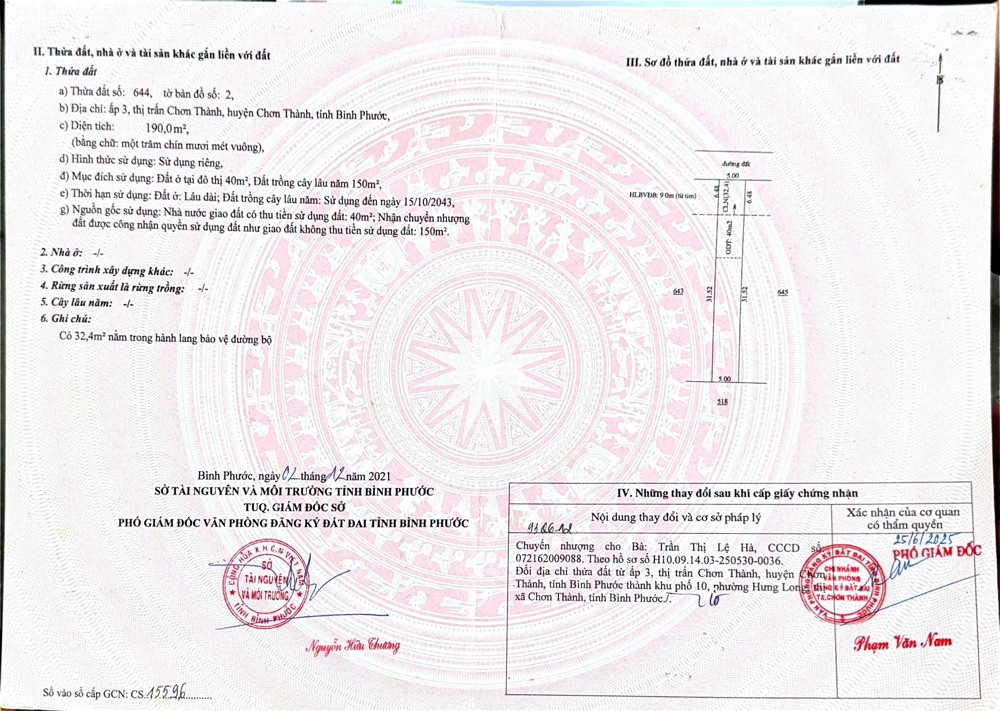 II. Thửa đất, nhà ở và tài sản khác gắn liền với đất
1. Thửa đất
a) Thửa đất số: 644, tờ bản đồ số: 2,
b) Địa chỉ: ấp 3, thị trấn Chơn Thành, huyện Chơn Thành, tỉnh Bình Phước,
c) Diện tích: 190,0m²,
(bằng chữ: một trăm chín mươi mét vuông),
d) Hình thức sử dụng: Sử dụng riêng,
đ) Mục đích sử dụng: Đất ở tại đô thị 40m², Đất trồng cây lâu năm 150m²,
e) Thời hạn sử dụng: Đất ở: Lâu dài; Đất trồng cây lâu năm: Sử dụng đến ngày 15/10/2043,
g) Nguồn gốc sử dụng: Nhà nước giao đất có thu tiền sử dụng đất: 40m²; Nhận chuyển nhượng
đất được công nhận quyền sử dụng đất như giao đất không thu tiền sử dụng đất: 150m².
2. Nhà ở: -/-
3. Công trình xây dựng khác: -/-
4. Rừng sản xuất là rừng trồng: -/-
5. Cây lâu năm: -/-
6. Ghi chú:
Có 32,4m² nằm trong hành lang bảo vệ đường bộ
Bình Phước, ngày 02 tháng 12 năm 2021
SỞ TÀI NGUYÊN VÀ MÔI TRƯỜNG TỈNH BÌNH PHƯỚC
TUQ. GIÁM ĐỐC SỞ
PHÓ GIÁM ĐỐC VĂN PHÒNG ĐĂNG KÝ ĐẤT ĐAI TỈNH BÌNH PHƯỚC
CỘNG HÒA X.H.C.N VIỆT NAM
SỞ
TÀI NGUYÊN
VÀ MÔI TRƯỜNG
TỈNH BÌNH PHƯỚC
Nguyễn Hữu Thương
Số vào sổ cấp GCN: CS.15596
III. Sơ đồ thửa đất, nhà ở và tài sản khác gắn liền với đất
B
đường đất
5.00
HLBVĐB: 9.0m (từ tim)
6.48
CLN(32.4)
6.48
ODT: 40m2
643
31.52
31.52
645
5.00
518
IV. Những thay đổi sau khi cấp giấy chứng nhận
Nội dung thay đổi và cơ sở pháp lý
Xác nhận của cơ quan
có thẩm quyền
Chuyển nhượng cho Bà: Trần Thị Lệ Hà, CCCD số
072162009088. Theo hồ sơ số H10.09.14.03-250530-0036.
Đổi địa chỉ thửa đất từ ấp 3, thị trấn Chơn Thành, huyện Chơn
Thành, tỉnh Bình Phước thành khu phố 10, phường Hưng Long, thị
xã Chơn Thành, tỉnh Bình Phước./.
25/6/2025
PHÓ GIÁM ĐỐC
VĂN PHÒNG ĐĂNG KÝ ĐẤT ĐAI TỈNH BÌNH PHƯỚC
CHI NHÁNH
VĂN PHÒNG
ĐĂNG KÝ ĐẤT ĐAI
TX.CHƠN THÀNH
Phạm Văn Nam